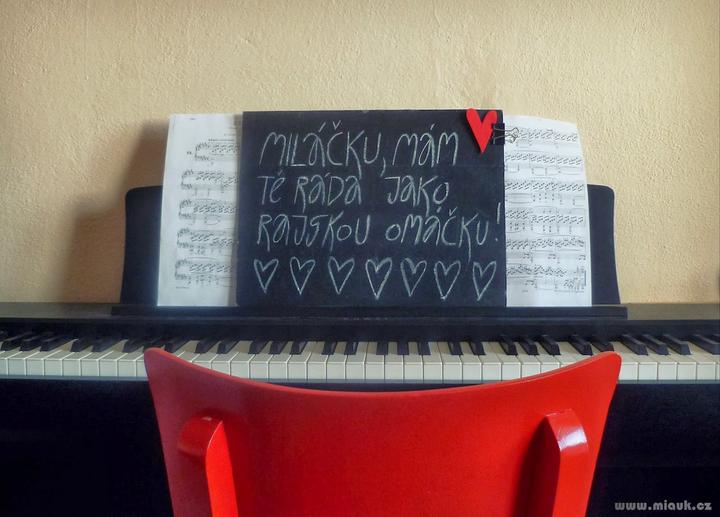 MILÁČKU, MÁM
TĚ RÁDA JAKO
RAJSKOU OMÁČKU!
www.miauk.cz